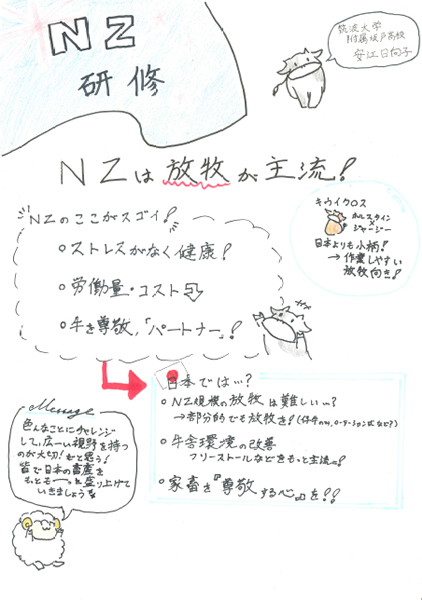 NZ
研修
筑波大学
附属坂戸高校
安江日向子
NZは放牧が主流!
NZのここがスゴイ!
○ストレスがなく健康!
○労働量・コスト
○牛を尊敬,「パートナー」!
キウイクロス
ホルスタイン
×
ジャージー
日本よりも小柄!
→作業しやすい
放牧向き!
日本では…?
○NZ規模の放牧は難しい…?
→部分的でも放牧を!
○牛舎環境の改善
フリーストールなどをもっと主流に!
○家畜を『尊敬する心』を!!
Message
色んなことにチャレンジ
して、広ーい視野を持つ
のが大切!だと思う!
皆で日本の畜産を
もっともーっと盛り上げて
いきましょう